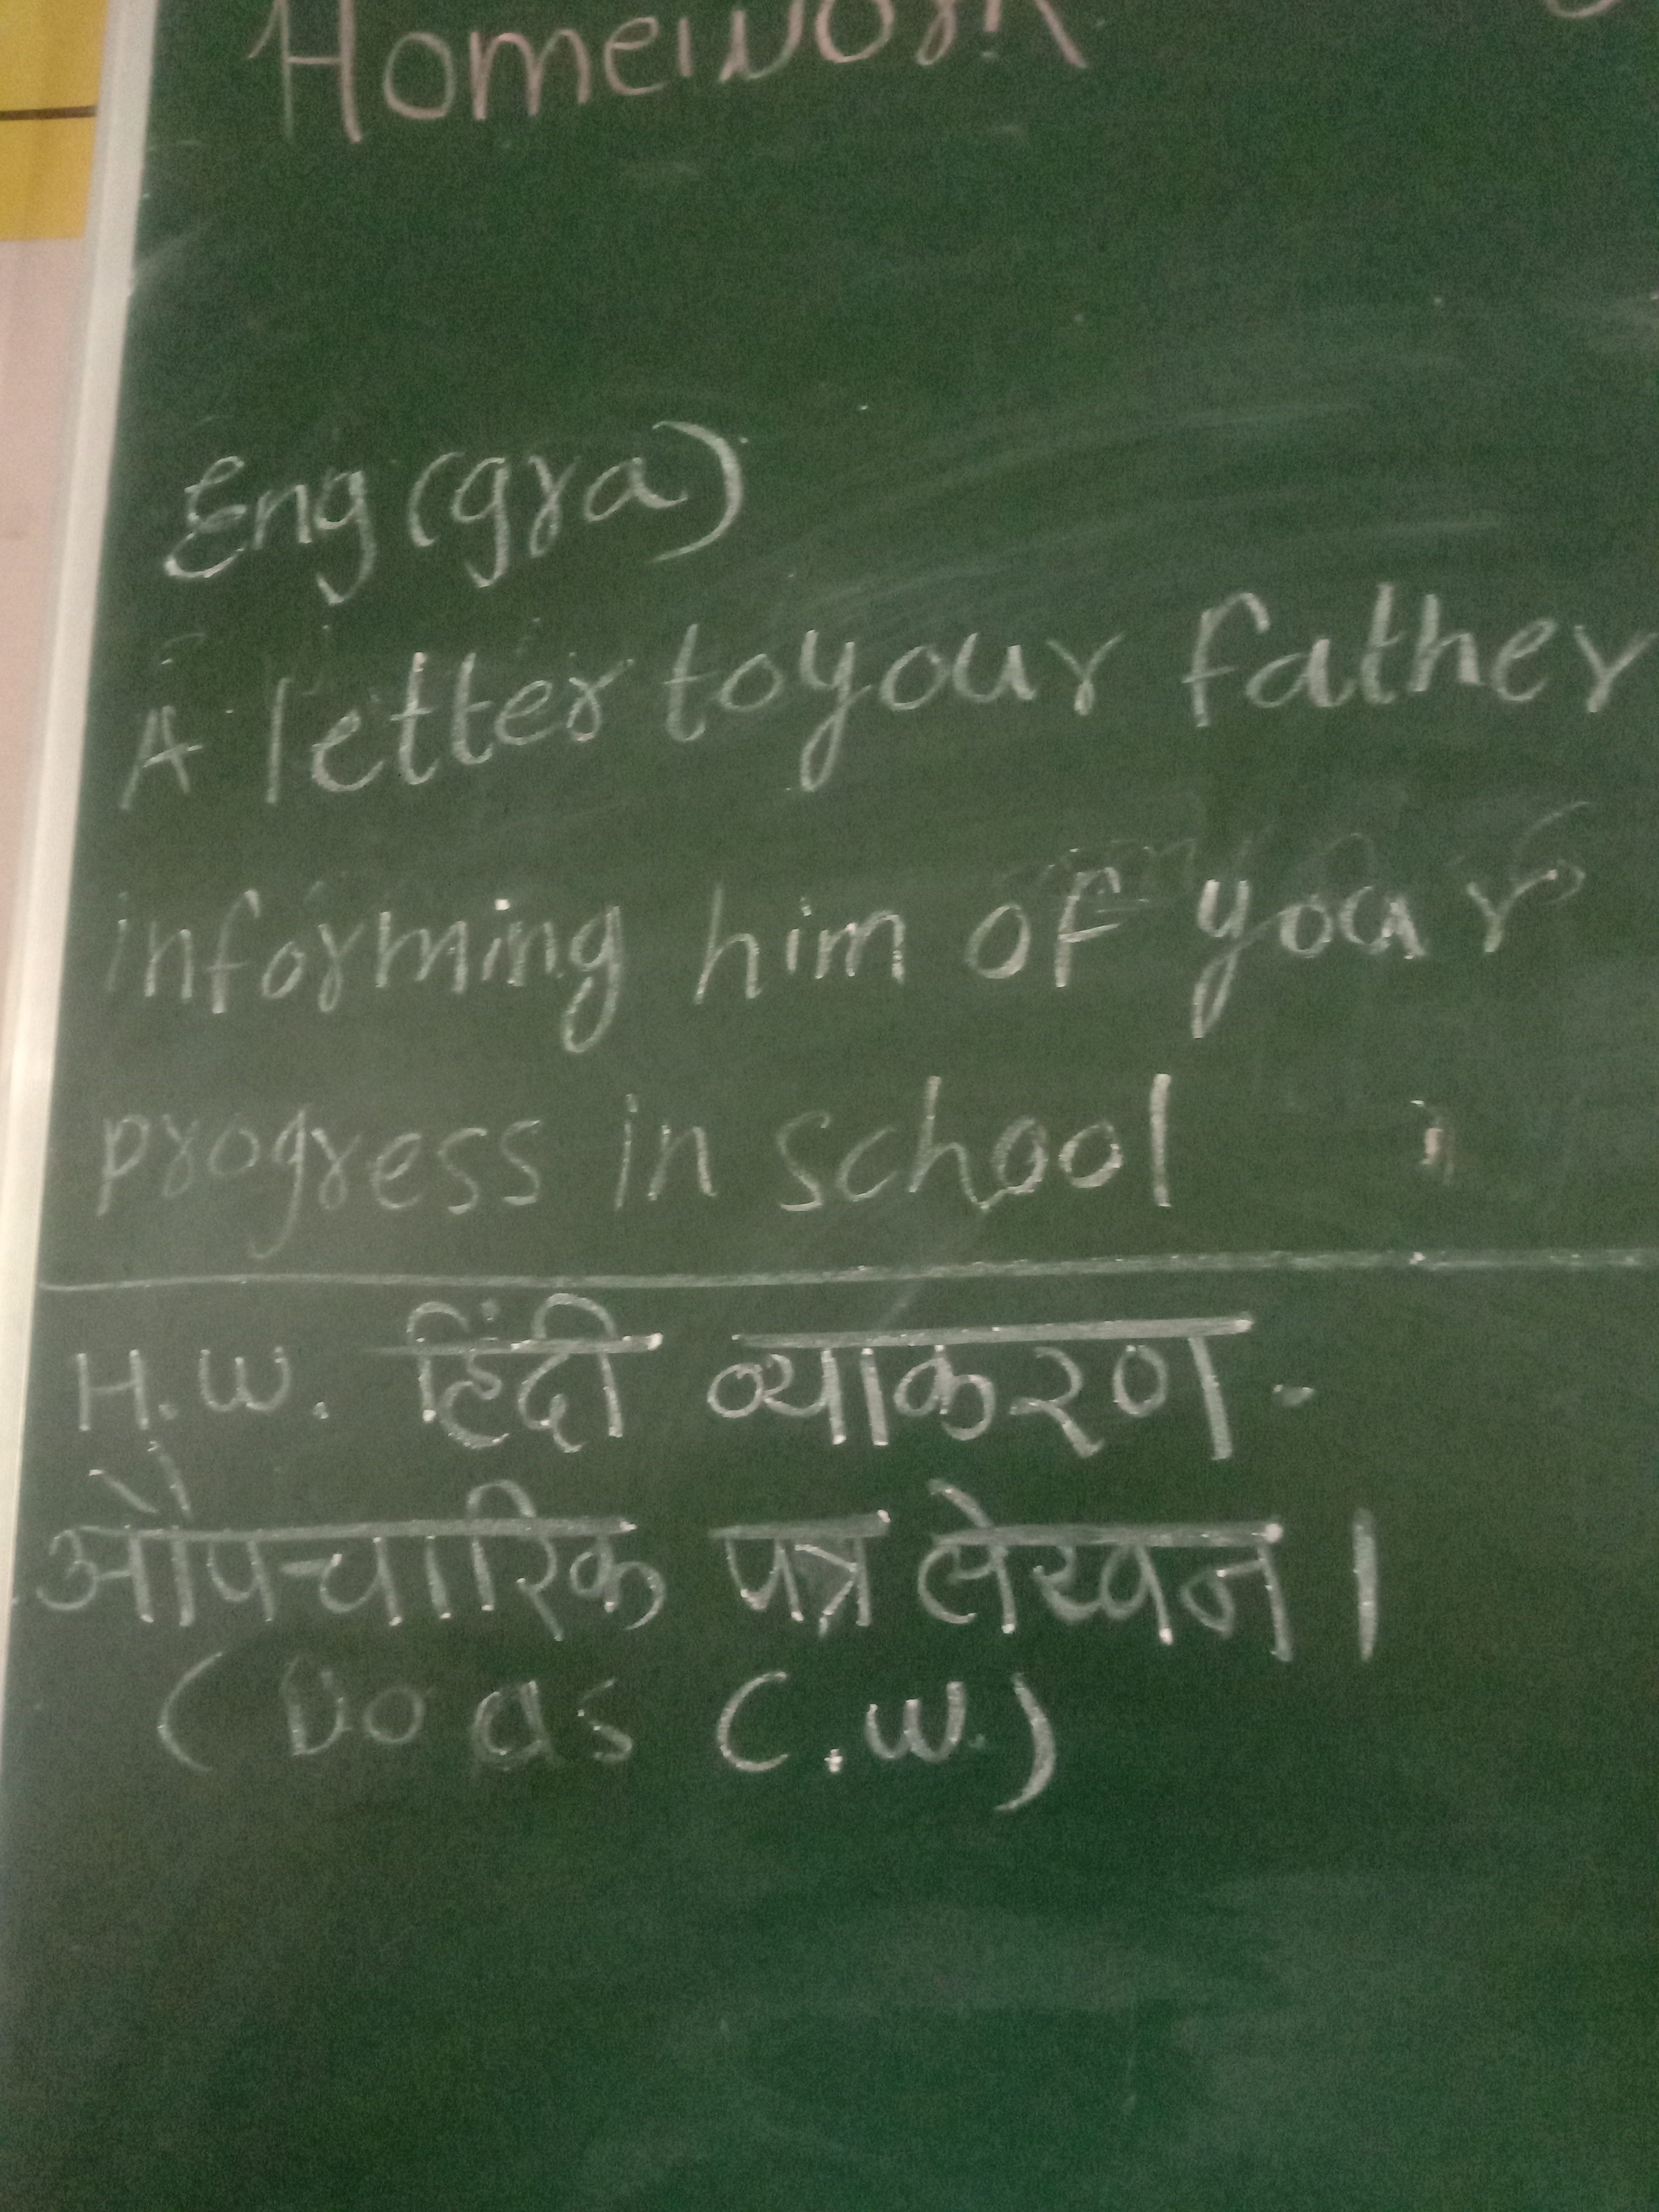 Homework
Eng (gra)
A letter to your father
informing him of your
progress in school
H.W. हिंदी व्याकरण -
औपचारिक पत्र लेखन ।
(Do as C.W.)